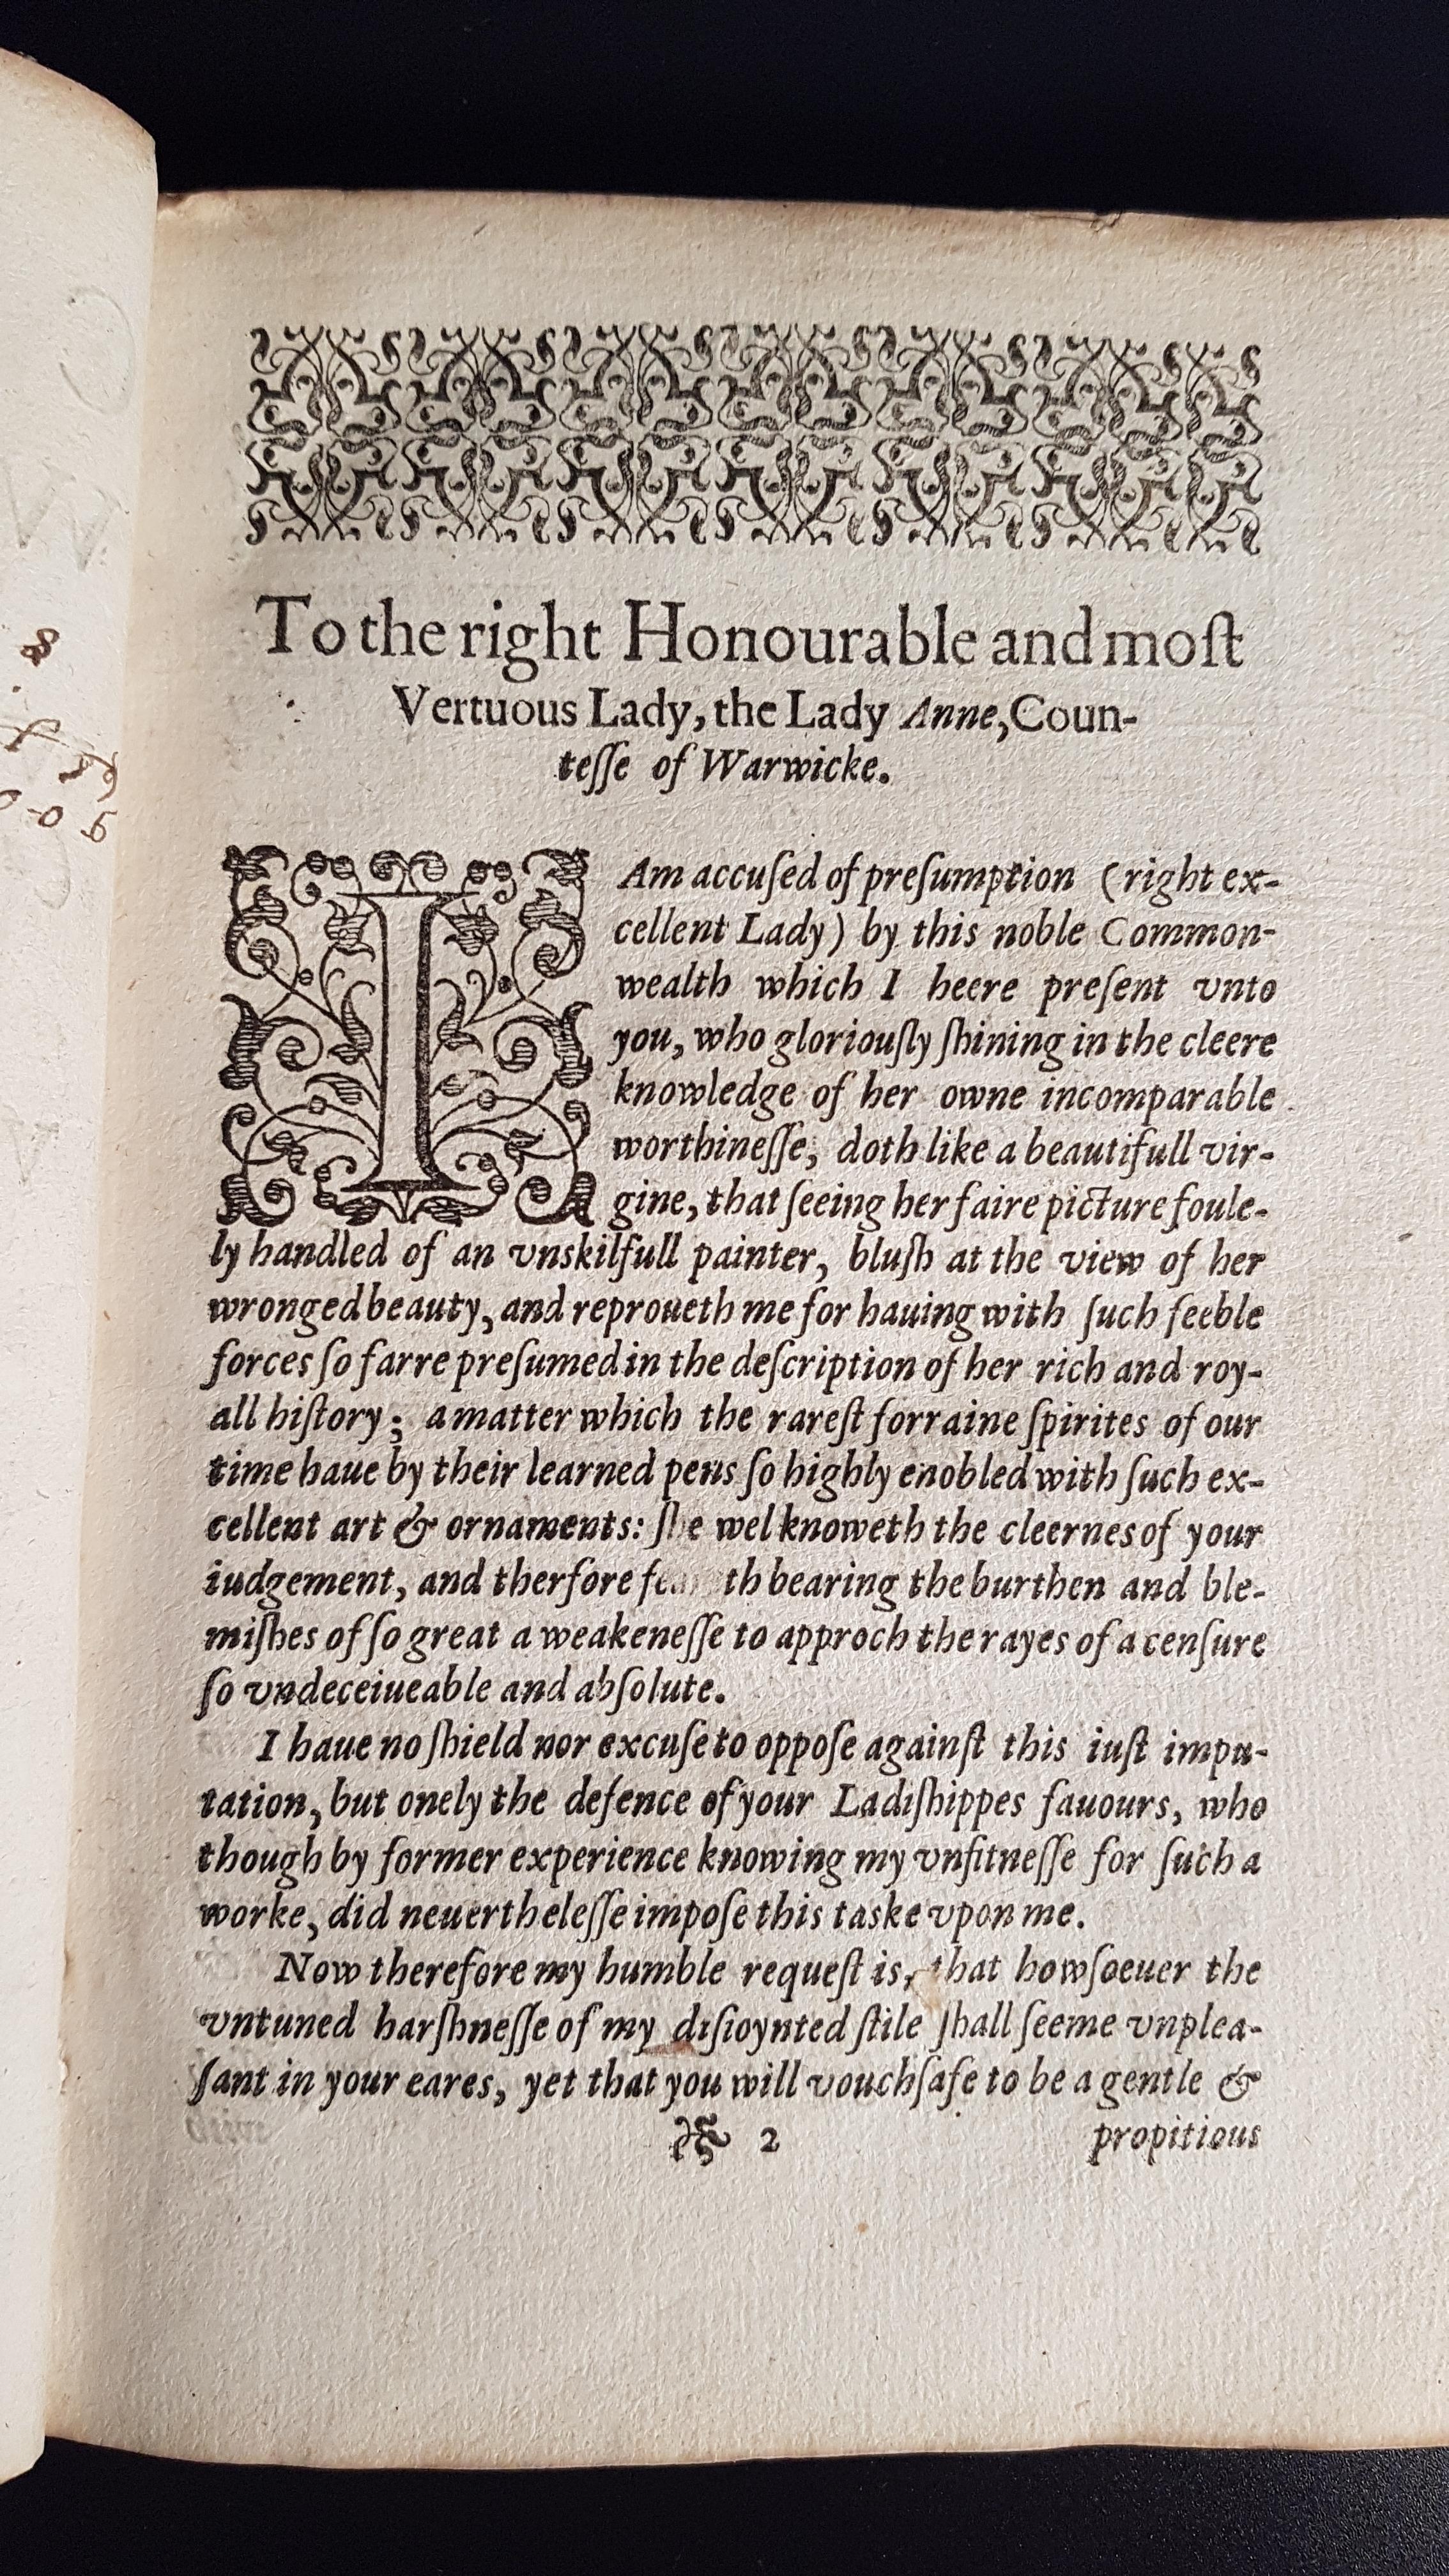 To the right Honourable and moſt
Vertuous Lady, the Lady Anne, Coun-
teſſe of Warwicke.
I Am accuſed of preſumption (right ex-
cellent Lady) by this noble Common-
wealth which I heere preſent vnto
you, who gloriouſly ſhining in the cleere
knowledge of her owne incomparable
worthineſſe, doth like a beautifull vir-
gine, that ſeeing her faire picture foule-
ly handled of an vnskilfull painter, bluſh at the view of her
wronged beauty, and reproueth me for hauing with ſuch feeble
forces ſo farre preſumed in the deſcription of her rich and roy-
all hiſtory; a matter which the rareſt forraine ſpirites of our
time haue by their learned pens ſo highly enobled with ſuch ex-
cellent art & ornaments: ſhe wel knoweth the cleernes of your
iudgement, and therfore feareth bearing the burthen and ble-
miſhes of ſo great a weakeneſſe to approch the rayes of a cenſure
ſo vndeceiueable and abſolute.
I haue no ſhield nor excuſe to oppoſe againſt this iuſt impu-
tation, but onely the defence of your Ladiſhippes fauours, who
though by former experience knowing my vnfitneſſe for ſuch a
worke, did neuertheleſſe impoſe this taske vpon me.
Now therefore my humble requeſt is, that howſoeuer the
vntuned harſhneſſe of my diſioynted ſtile ſhall ſeeme vnplea-
ſant in your eares, yet that you will vouchſafe to be a gentle &
2 propitious